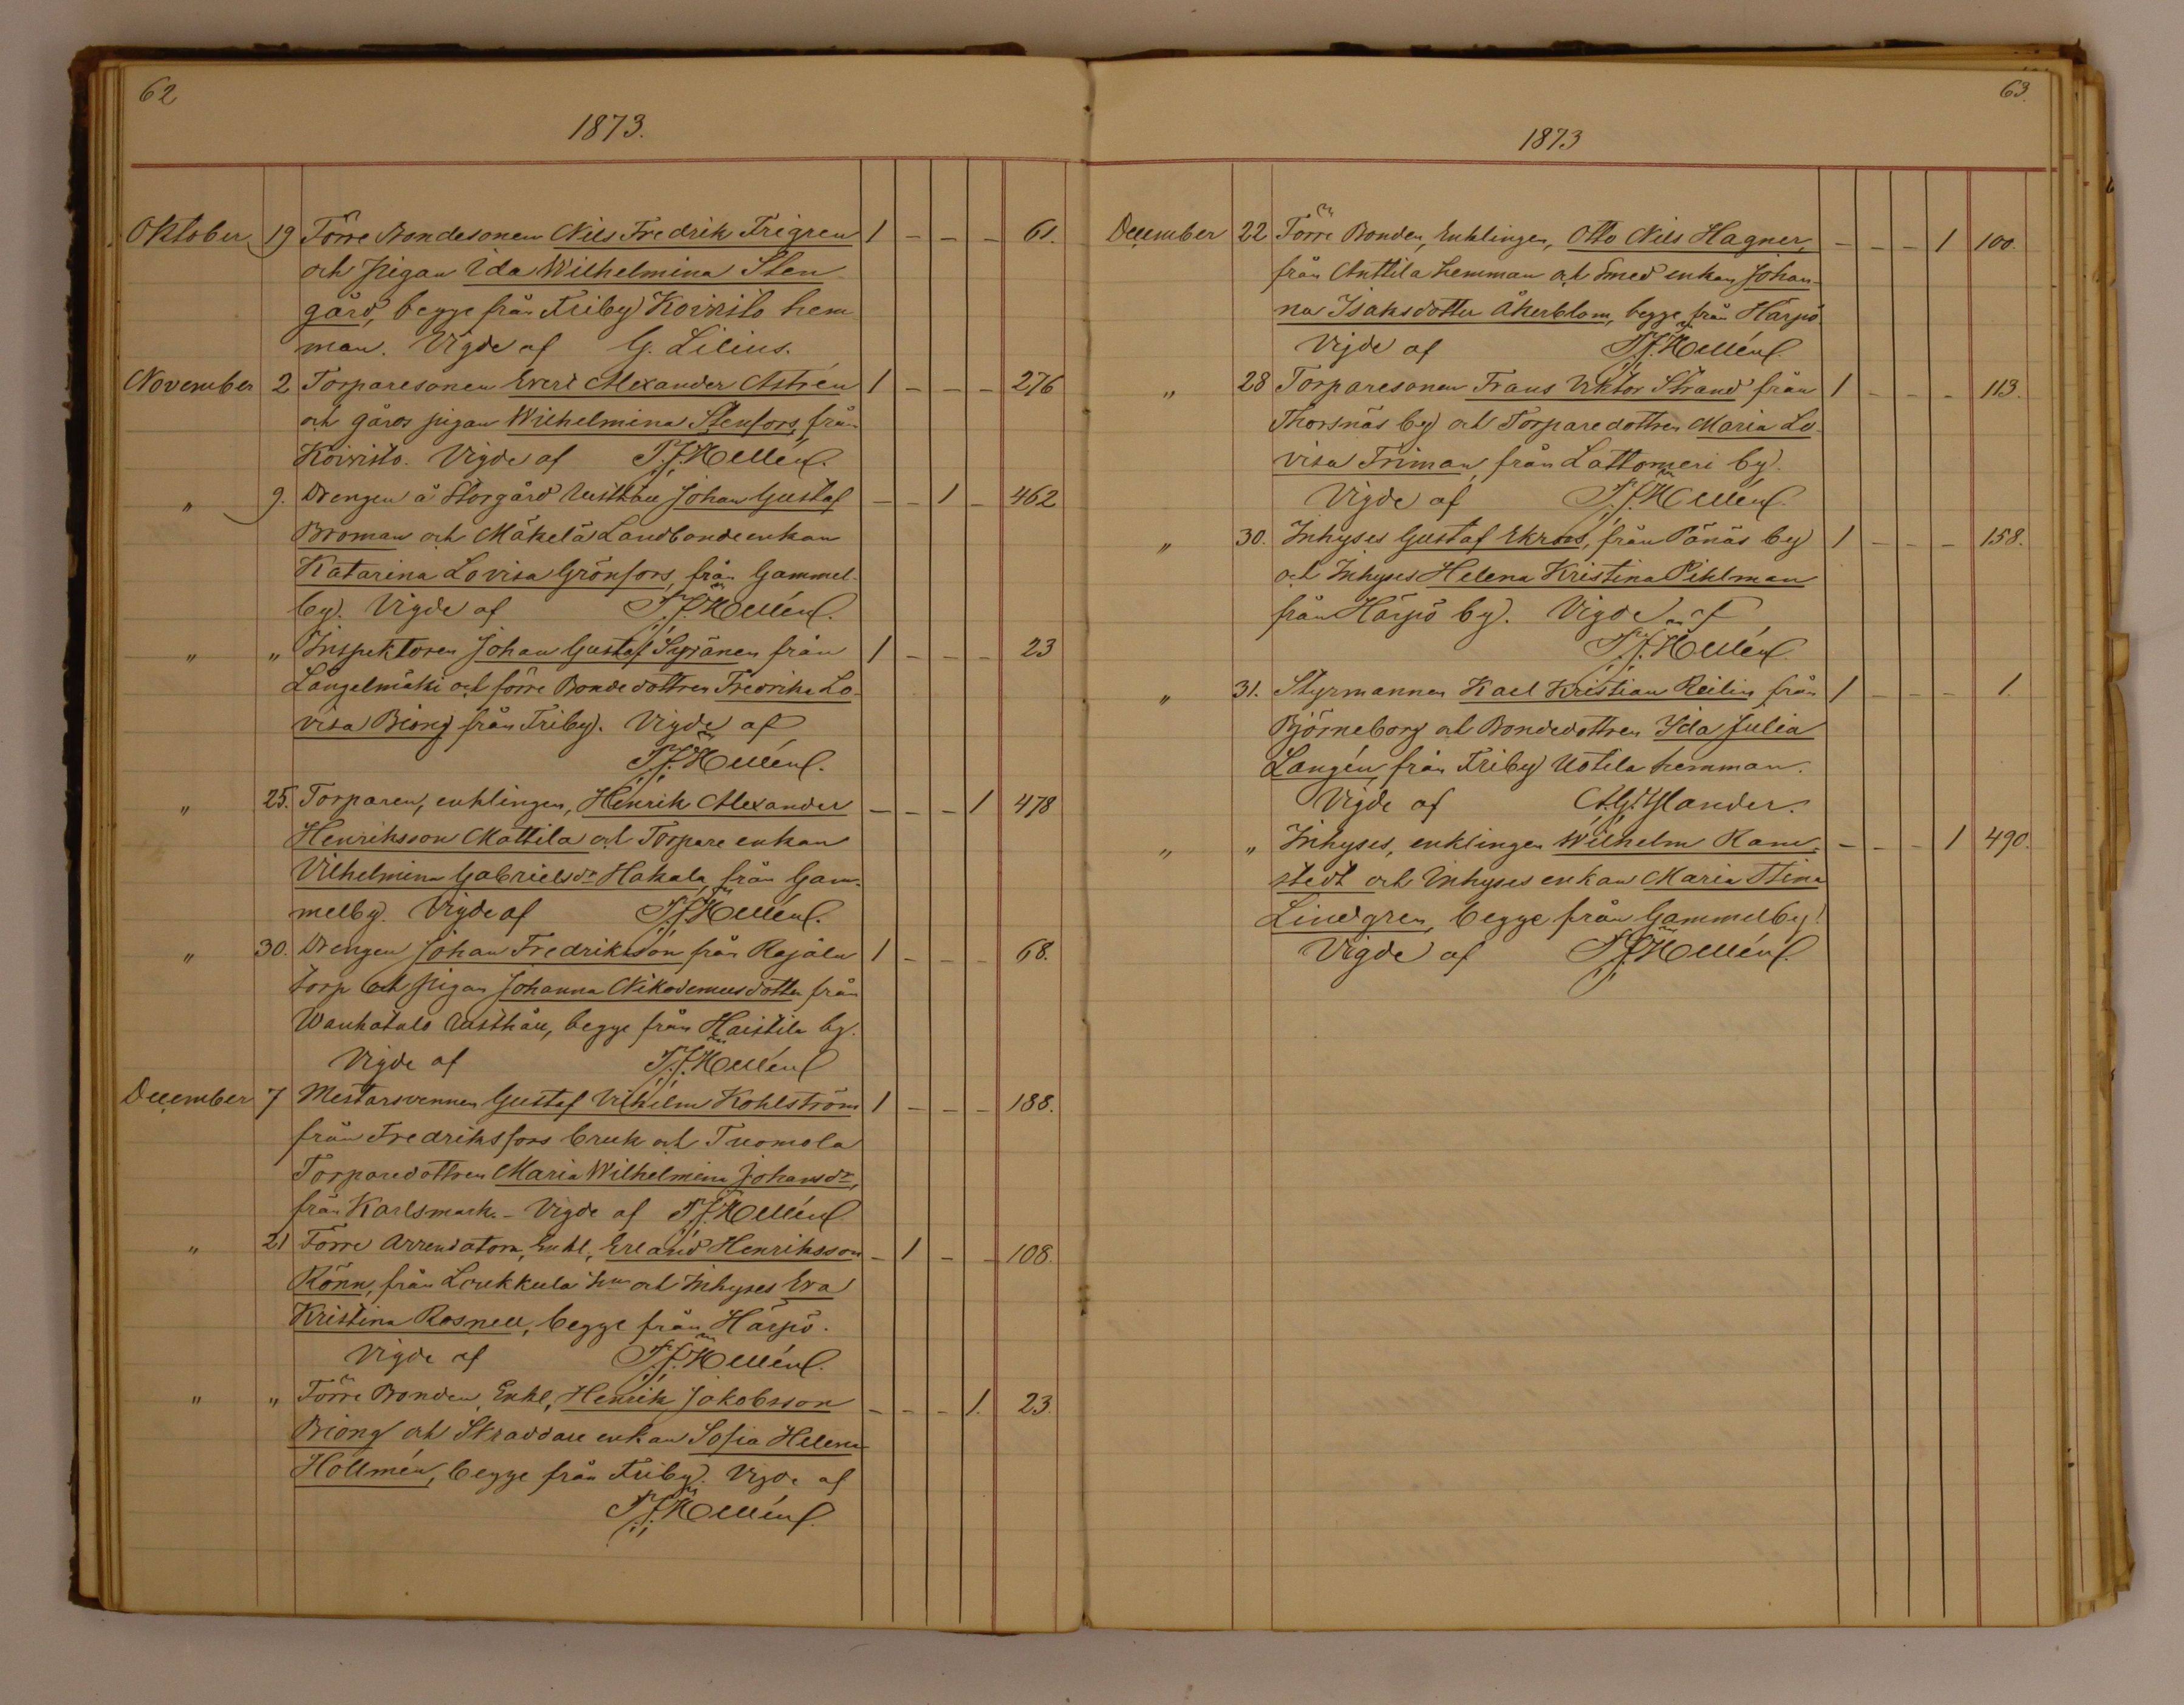 62
1873.
Oktober 19 Förre Bondesonen Nils Fredrik Frigren 1 – – – 61.
och pigan Ida Wilhelmina Sten-
gård, begge från Friby Koivisto hem-
man. Vigde af G. Lilius.
November 2 Torparesonen Evert Alexander Astrén 1 – – – 276
och gårds pigan Wilhelmina Stenfors, från
Koivisto. Vigde af T. J. Hellén.
" 9. Drengen å Storgård Rusthåll Johan Gustaf – – 1 – 462
Broman och Mäkelä Landbondeenkan
Katarina Lovisa Grönfors, från Gammel-
by. Vigde af T. J. Hellén.
" " Inspektoren Johan Gustaf Syränen från 1 – – – 23
Längelmäki och förre Bondedottren Fredrika Lo-
visa Biong från Friby. Vigde af
T. J. Hellén.
" 25. Torparen, enklingen, Henrik Alexander – – – 1 478
Henriksson Mattila och Torpare enkan
Vilhelmina Gabrielsdr Hakala, från Gam-
melby. Vigde af T. J. Hellén.
" 30. Drengen Johan Fredriksson från Rajala 1 – – – 68.
torp och pigan Johanna Nikodemusdotter från
Wanhatalo Rusthåll, begge från Haistila by.
Vigde af T. J. Hellén
December 7 Mestarsvennen Gustaf Vilhelm Kohlström 1 – – – 188.
från Fredriksfors bruk och Tuomola
Torparedottren Maria Wilhelmina Johansdr,
från Karlsmark. – Vigde af T. J. Hellén
" 21 Förre Arrendatorn, Enkl, Erland Henriksson – 1 – – 108.
Rönn, från Loukkula hn och Inhyses Eva
Kristina Rosnell, begge från Härpö.
Vigde af T. J. Hellén.
" " Förre Bonden, Enkl, Henrik Jakobsson – – – 1. 23.
Biong och Skraddare enkan Sofia Helena
Hollmén, begge från Friby. Vigde af
T. J. Hellén.
63.
1873
December 22 Förre Bonden, Enklingen, Otto Nils Hagner, – – – 1 100.
från Anttila hemman och Smed enkan Johan-
na Isaksdotter Åkerblom, begge från Härpö.
Vigde af T. J. Hellén.
" 28 Torparesonen Frans Viktor Strand från 1 – – – 113.
Thorsnäs by och Torparedottren Maria Lo-
visa Friman, från Lattomeri by.
Vigde af T. J. Hellén.
" 30. Inhyses Gustaf Ekroos, från Pänäs by 1 – – – 158.
och Inhyses Helena Kristina Pihlman
från Härpö by. Vigde af
T. J. Hellén.
" 31. Styrmannen Karl Kristian Reilin från 1 – – – 1.
Björneborg och Bondedottren Ida Julia
Langén, från Friby Uotila hemman.
Vigde af
" " Inhyses, enklingen Wilhelm Ram- – – – 1 490.
stedt och Inhyses enkan Maria Stina
Lindgren, begge från Gammelby.
Vigde af T. J. Hellén.